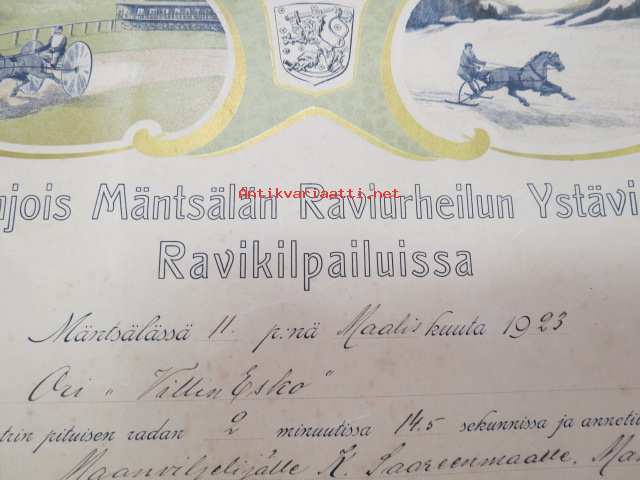 Antikvariaatti.net
ujois Mäntsälän Raviurheilun Ystävi
Ravikilpailuissa
Mäntsälässä 11. p:nä Maaliskuuta 1923
Ori „Villin Esko"
trin pituisen radan 2 minuutissa 14.5 sekunnissa ja annetii
Maanviljelijälle K. Saareenmaalle, Män